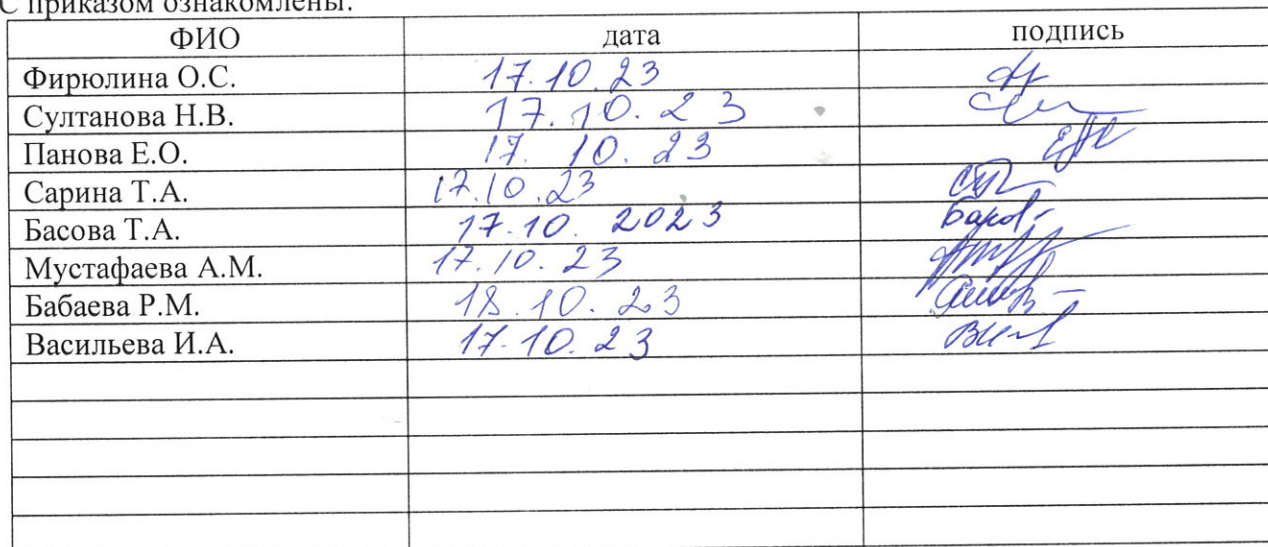 С приказом ознакомлены:
ФИО дата подпись
Фирюлина О.С. 17.10.23
Султанова Н.В. 17.10.23
Панова Е.О. 17.10.23
Сарина Т.А. 17.10.23
Басова Т.А. 17.10.2023
Мустафаева А.М. 17.10.23
Бабаева Р.М. 18.10.23
Васильева И.А. 17.10.23